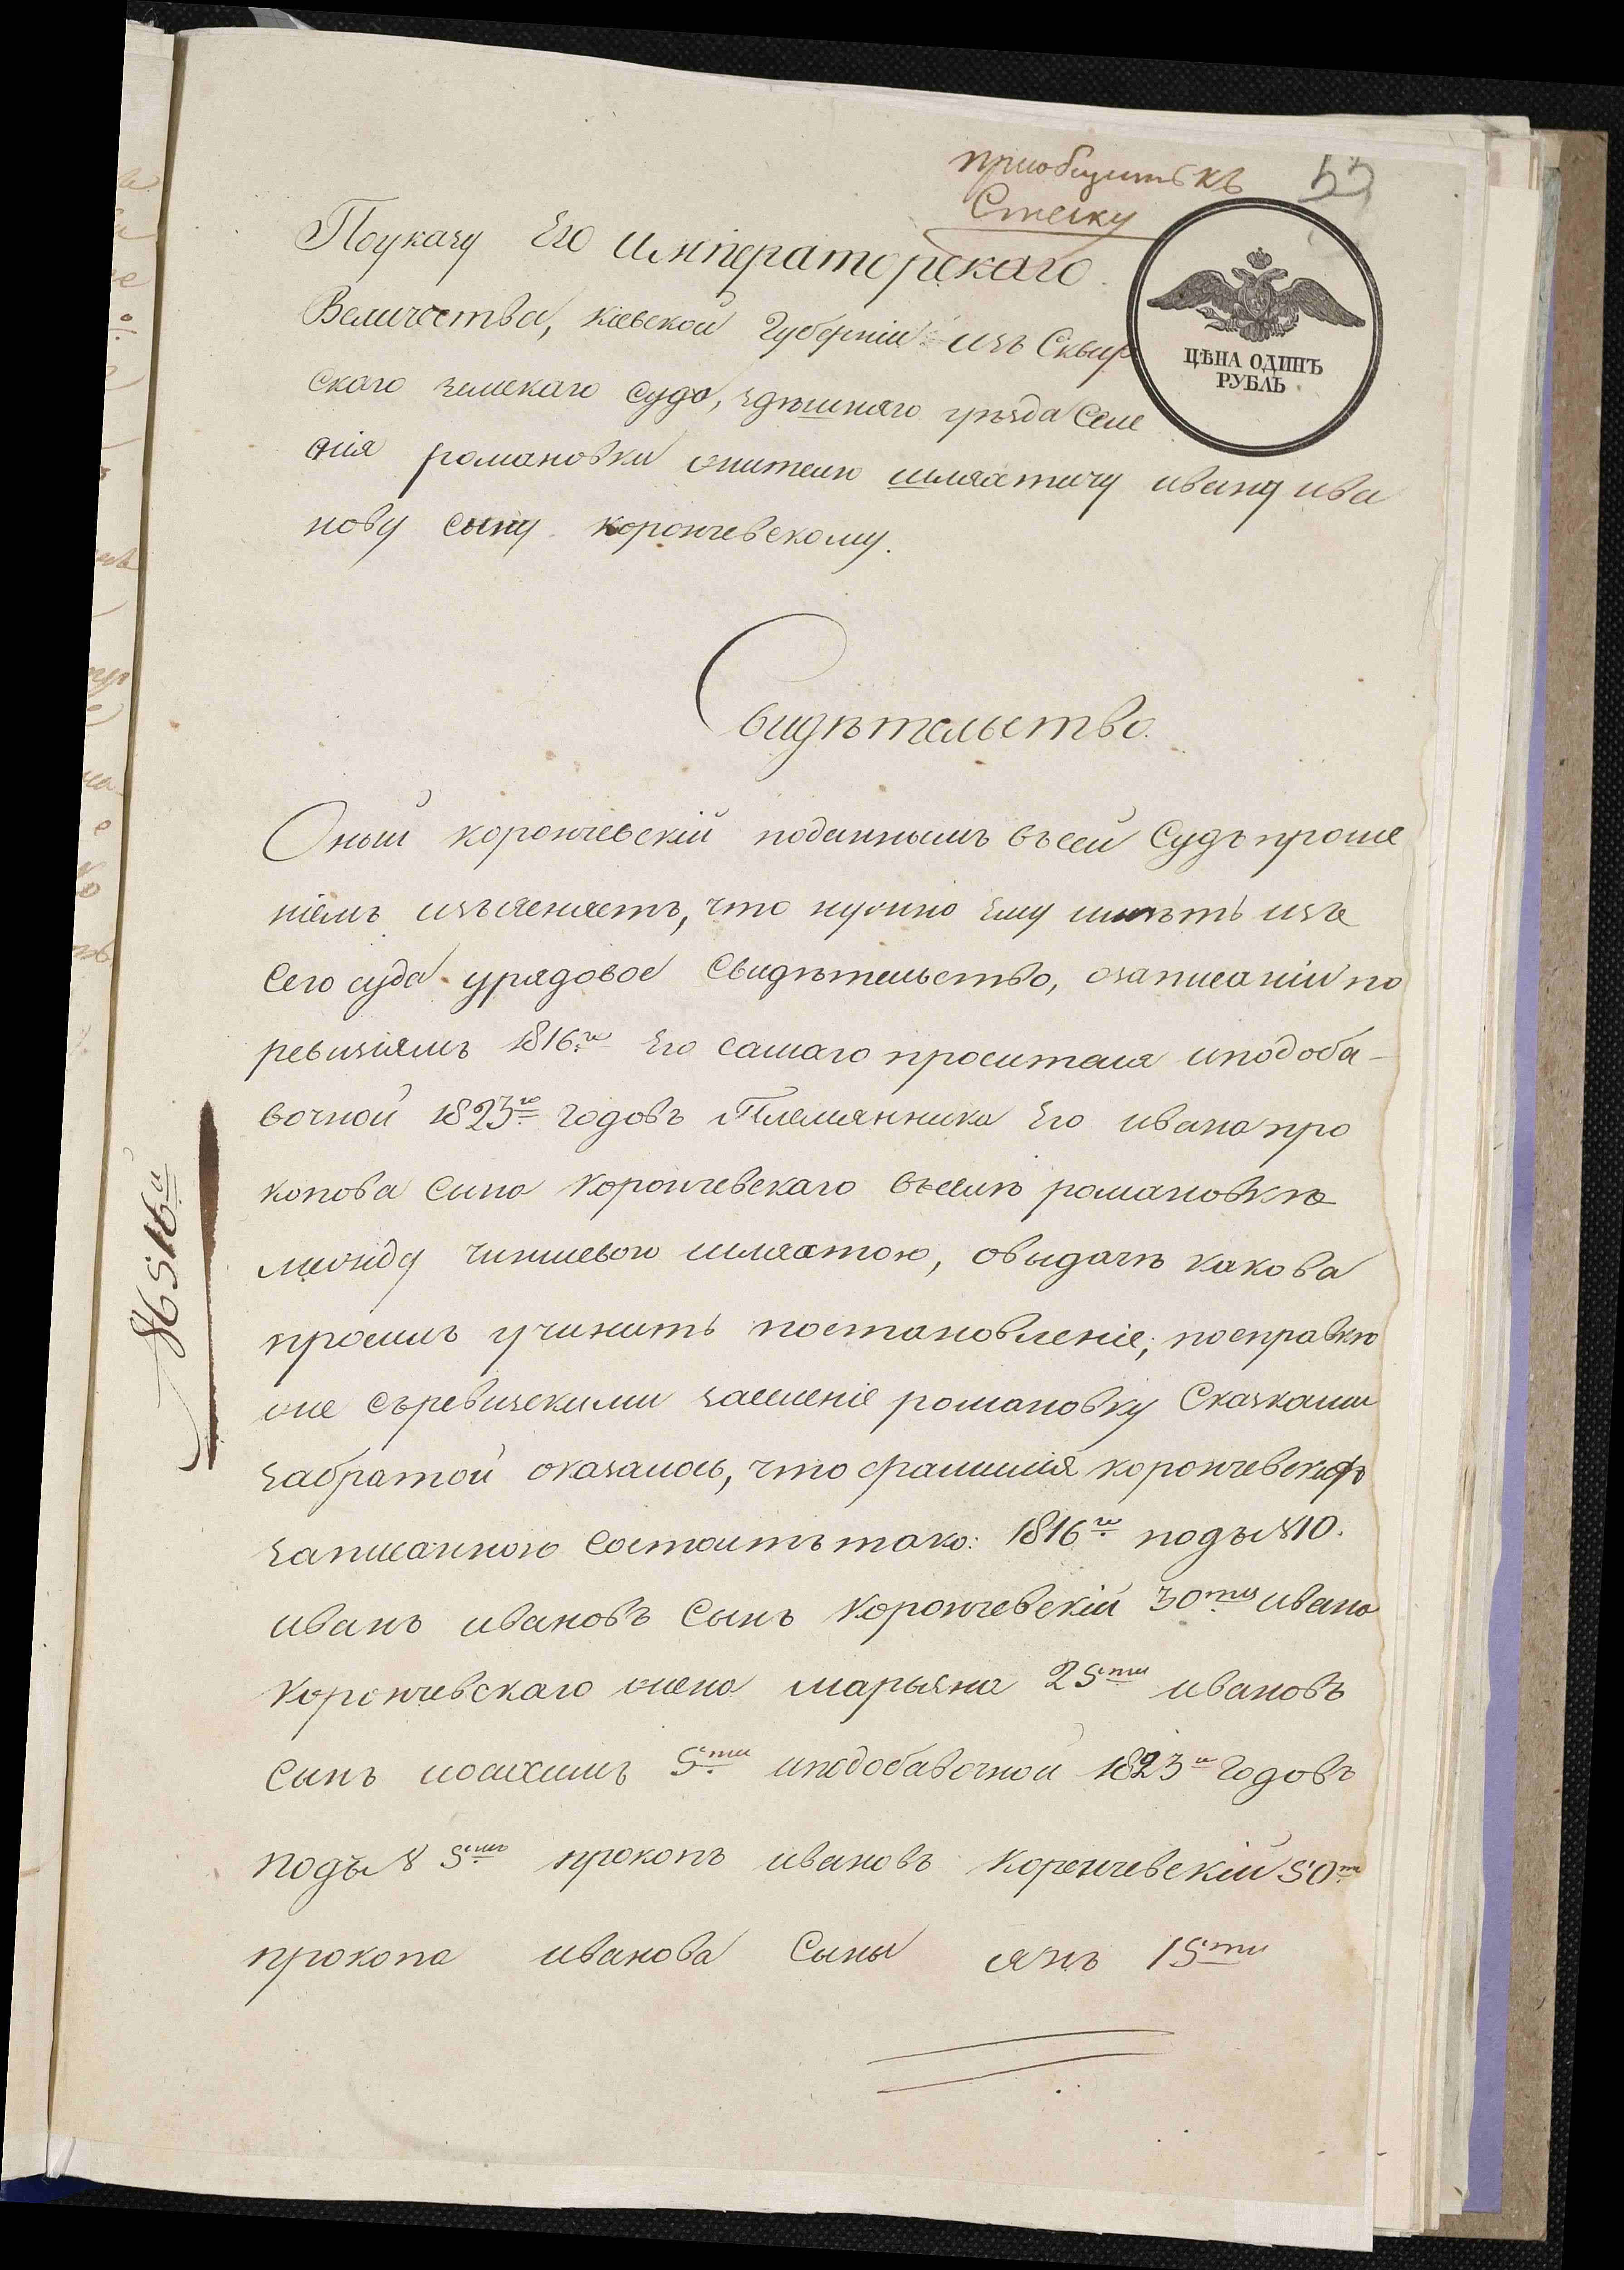 приобщить къ
53
Списку
Поуказу Его императорскаго
Величества, киевской Губерніи изъ Сквир
ЦѢНА ОДИНЪ
РУБЛЬ
скаго земскаго суда, здѣшняго уѣзда Селе
нія романовки жителю шляхтичу ивану ива
нову сыну корончевскому.
Свидѣтельство.
Оный корончевскій поданнымъ въсей Судъ проше
ніемъ изъясняетъ, что нужно Ему имѣть изъ
Сего суда урядовое Свидѣтельство, озаписаніи по
ревизіямъ 1816го Его самаго просителя иподоба-
вочной 1823го годовъ Племянника Его ивана про
копова Сына Корончевскаго въселѣ романовкѣ
между чиншевою шляхтою, овыдачѣ какова
просилъ учинить постановленіе, посправкѣ
же съревизскими заселеніе романовку Сказками
забратой оказалось, что фамилия корончевскихъ
записанною Состоитъ тако: 1816го подъ № 10.
иванъ ивановъ Сынъ Корончевскій 30ти ивана
Корончевскаго жена марьяна 25ти ивановъ
Сынъ иоахимъ 5ти иподобавочной 1823го Годовъ
подъ № 5мъ прокопъ ивановъ Корончевскій 50ти
прокопа иванова Сыны янъ 15ти